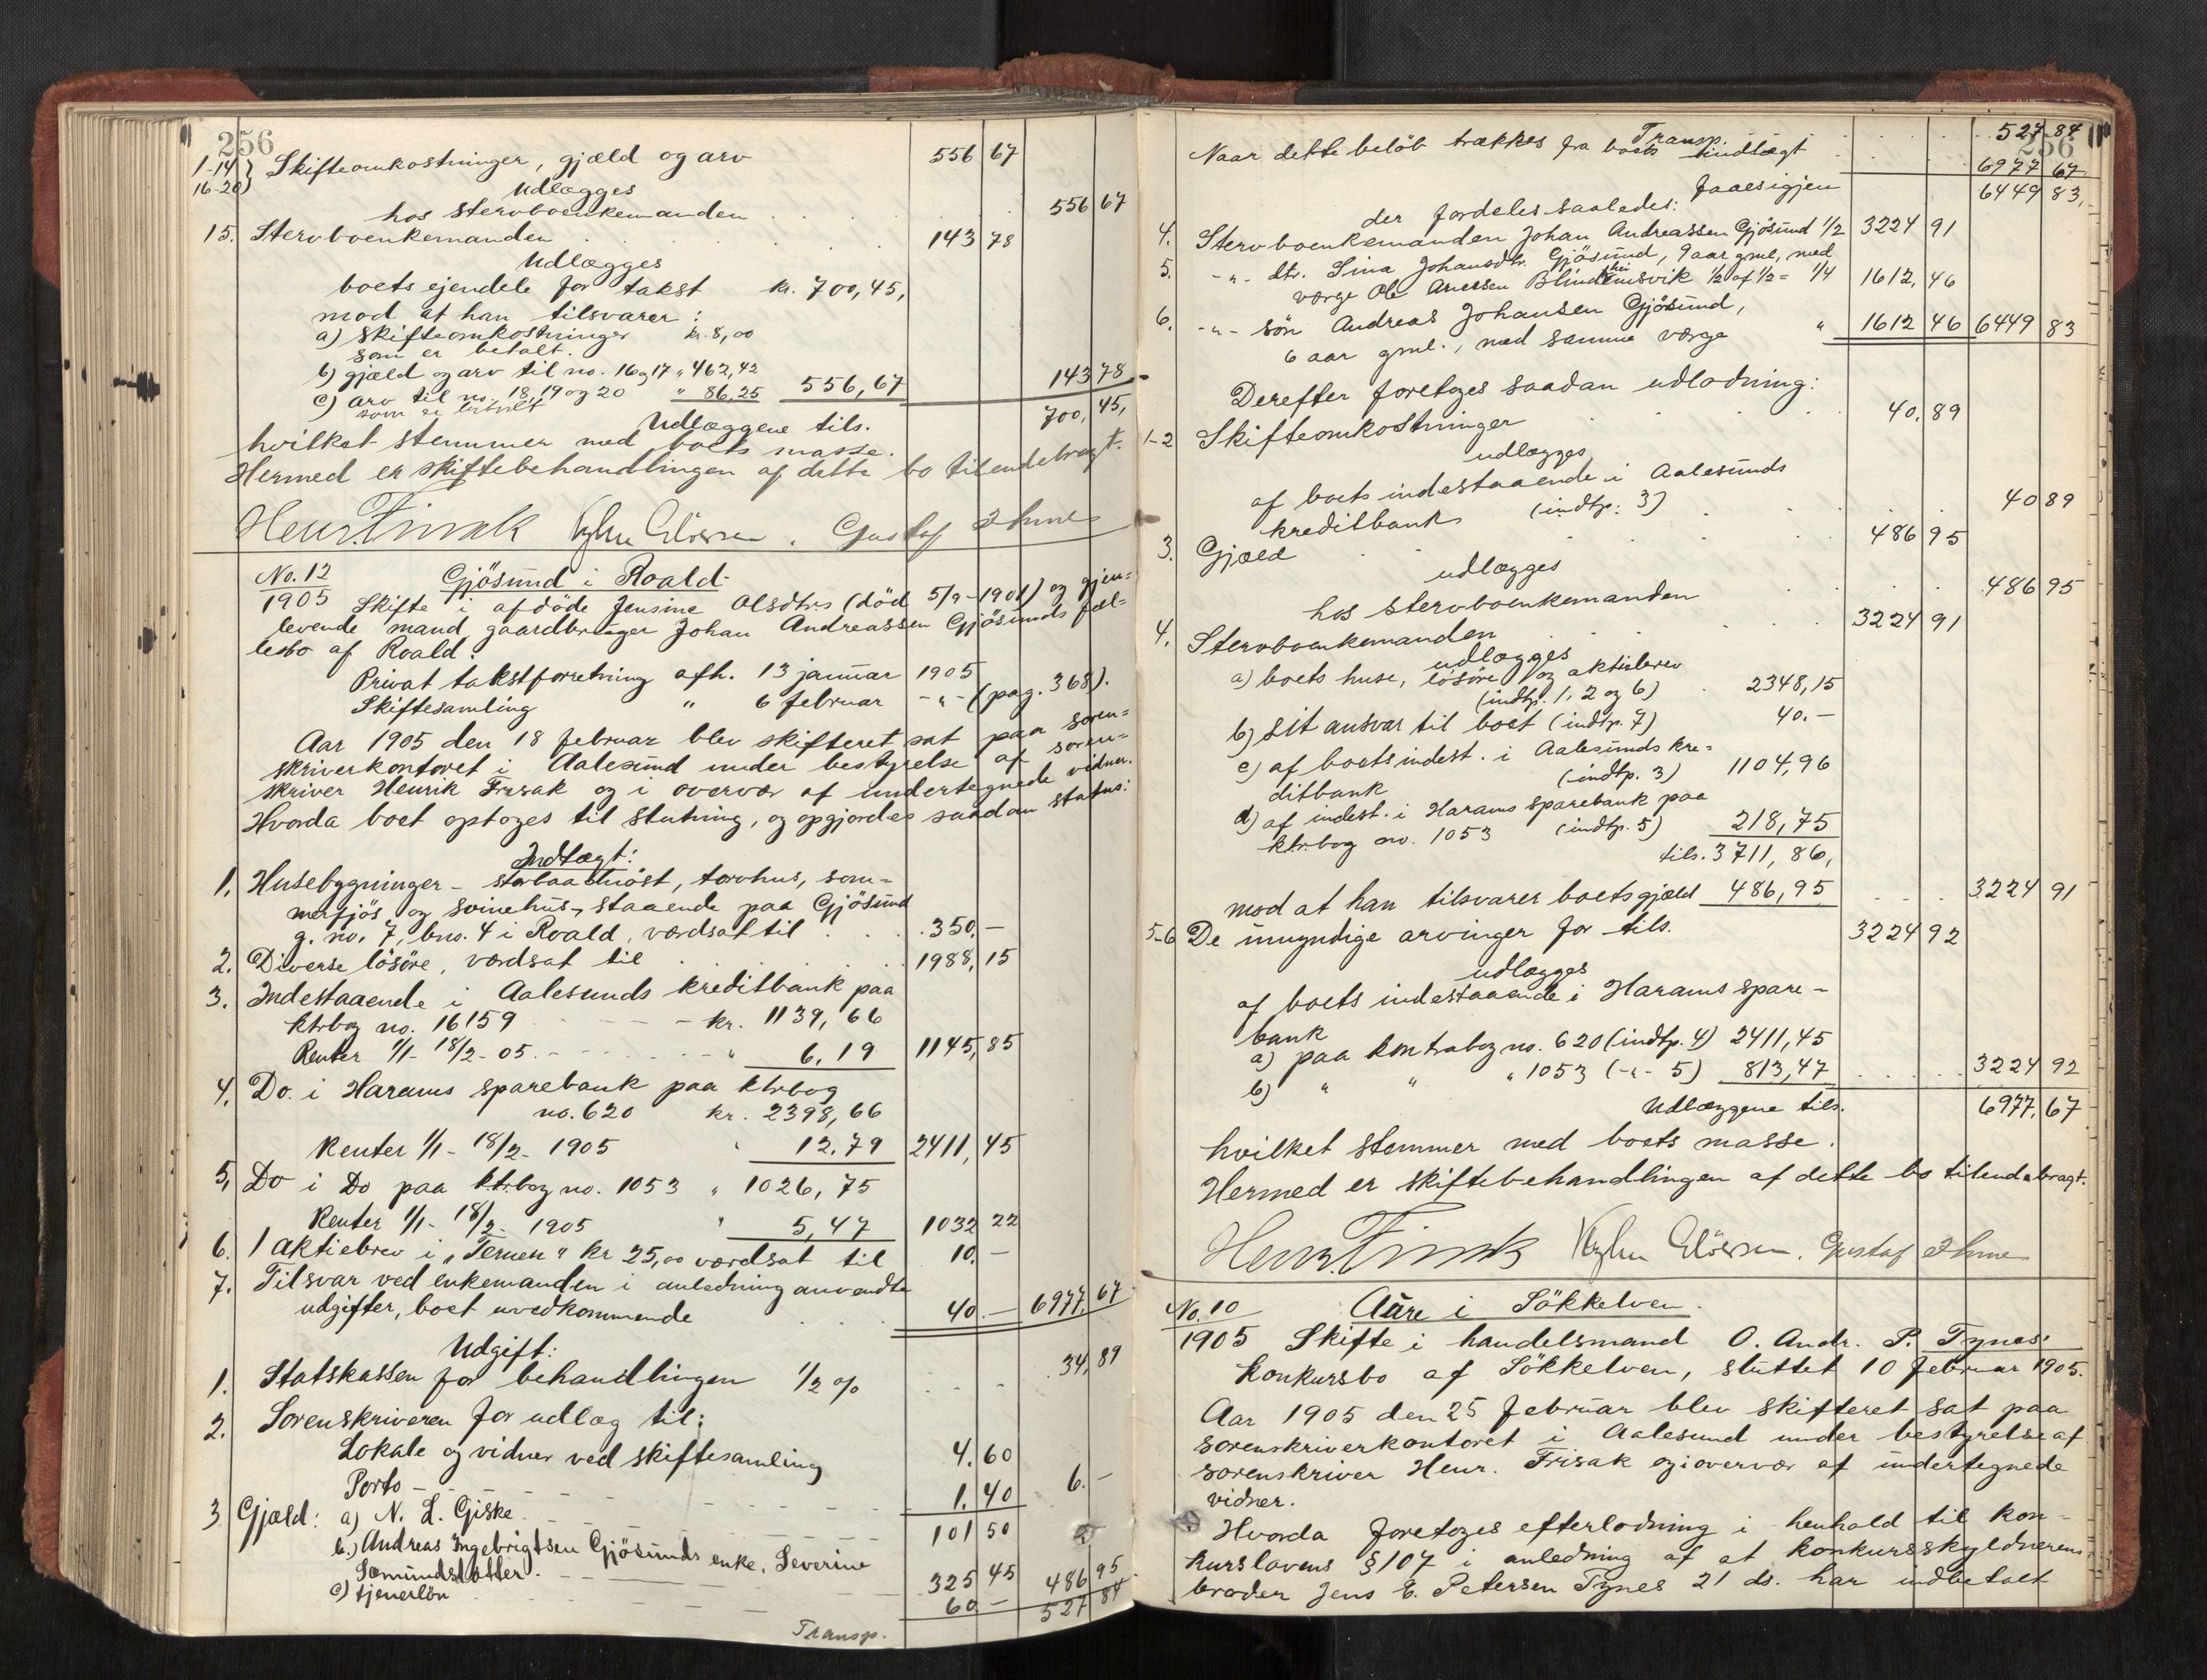 256
1-14 } Skifteomkostninger, gjæld og arv 556 67
16-20 }
Udlægges
hos stervboenkemanden 556 67
15. Stervboenkemanden 143 78
Udlægges
boets ejendele for takst kr. 700,45,
mod at han tilsvarer:
a) skifteomkostninger kr. 8,00
som er betalt.
b) gjæld og arv til no. 16 og 17 " 462,42
c) arv til no. 18, 19 og 20 " 86,25 556,67 143 78
som er betalt
Udlæggene tils. 700, 45,
hvilket stemmer med boets masse.
Hermed er skiftebehandlingen af dette bo tilendebragt.
Henr. Frisak Gustaf Ihme
No. 12 Gjösund i Roald.
1905 Skifte i afdöde Jensine Olsdtrs (död 5/9-1901) og gjen=
levende mand gaardbruger Johan Andreassen Gjösunds fæl=
lesbo af Roald.
Privat takstforretning afh. 13 januar 1905
Skiftesamling " 6 februar -"- (pag. 368).
Aar 1905 den 18 februar blev skifteret sat paa soren=
skriverkontoret i Aalesund under bestyrelse af soren=
skriver Henrik Frisak og i overvær af undertegnede vidner.
Hvorda boet optoges til slutning, og opgjordes saadan status:
Indtægt:
1. Husebygninger - storbaadnöst, torvhus, som=
merfjös og svinehus, staaende paa Gjösund
g. no. 7, bno. 4 i Roald, værdsat til 350, —
2. Diverse lösöre, værdsat til 1988, 15
3. Indestaaende i Aalesunds kreditbank paa
ktrbog no. 16159 kr. 1139, 66
Renter 1/1 - 18/2 - 05. " 6,19 1145, 85
4. Do. i Harams sparebank paa ktrbog
no. 620 kr. 2398, 66
Renter 1/1 - 18/2 - 1905 " 12.79 2411, 45
5, Do i Do paa ktrbog no. 1053 " 1026, 75
Renter 1/1 - 18/2 - 1905 " 5,47 1032 22
6. 1 aktiebrev i "Ternen" kr 25,00 værdsat til 10. —
7. Tilsvar ved enkemanden i anledning anvendte
udgifter, boet uvedkommende 40 — 6977, 67
Udgift:
1. Statskassen for behandlingen 1/2 % 34, 89
2. Sorenskriveren for udlæg til:
Lokale og vidner ved skiftesamling 4. 60
Porto — 1. 40 6. —
3 Gjæld: a) N. L. Giske 101 50
b.) Andreas Ingebrigtsen Gjösunds enke, Severine
Sæmundsdatter. 325 45 486 95
c) tjenerlön 60 — 527 84
Transp.
256
Transp. 527 84
Naar dette belöb trækkes fra boets indtægt 6977 67
faaes igjen 6449 83,
der fordeles saaledes:
4. Stervboenkemanden Johan Andreassen Gjösund 1/2 3224 91
5. -"- dtr. Lina Johansdtr. Gjösund, 9 aar gml, med
værge Ole Anessen Blindheimsvik 1/2 af 1/2 = 1/4 1612, 46
6. -"- sön Andreas Johansen Gjösund,
6 aar gml., med samme værge " 1612 46 6449 83
Derefter foretoges saadan udlodning:
1-2 Skifteomkostninger 40, 89
udlægges
af boets indestaaende i Aalesunds
kreditbank (indtp. 3) 40 89
3. Gjæld 486 95
udlægges
hos stervboenkemanden 486 95
4. Stervboenkemanden 3224 91
udlægges
a) boets huse, lösöre og aktiebrev
(indtp. 1, 2 og 6) 2348,15
b) sit ansvar til boet (indtp. 7) 40. —
c) af boets indest. i Aalesunds kre=
ditbank (indtp. 3) 1104,96
d) af indest. i Harams sparebank paa
ktrbog no. 1053 (indtp. 5) 218,75
tils. 3711, 86,
mod at han tilsvarer boets gjæld 486,95 3224 91
5-6 De umyndige arvinger for tils. 3224 92
udlægges
af boets indestaaende i Harams spare-
bank
a) paa kontrabog no. 620 (indtp. 4) 2411,45
b) " " " 1053 (-"- 5) 813,47 3224 92
Udlæggene tils. 6977, 67
hvilket stemmer med boets masse.
Hermed er skiftebehandlingen af dette bo tilendebragt.
Henr. Frisak Gustaf Ihme
No. 10 Aure i Sökkelven.
1905 Skifte i handelsmand O. Andr. P. Tynes'
konkursbo af Sökkelven, sluttet 10 februar 1905.
Aar 1905 den 25 februar blev skifteret sat paa
sorenskriverkontoret i Aalesund under bestyrelse af
sorenskriver Henr. Frisak og i overvær af undertegnede
vidner.
Hvorda foretoges efterlodning i henhold til kon-
kurslovens § 107 i anledning af at konkursskyldnerens
broder Jens E. Petersen Tynes 21 ds. har indbetalt